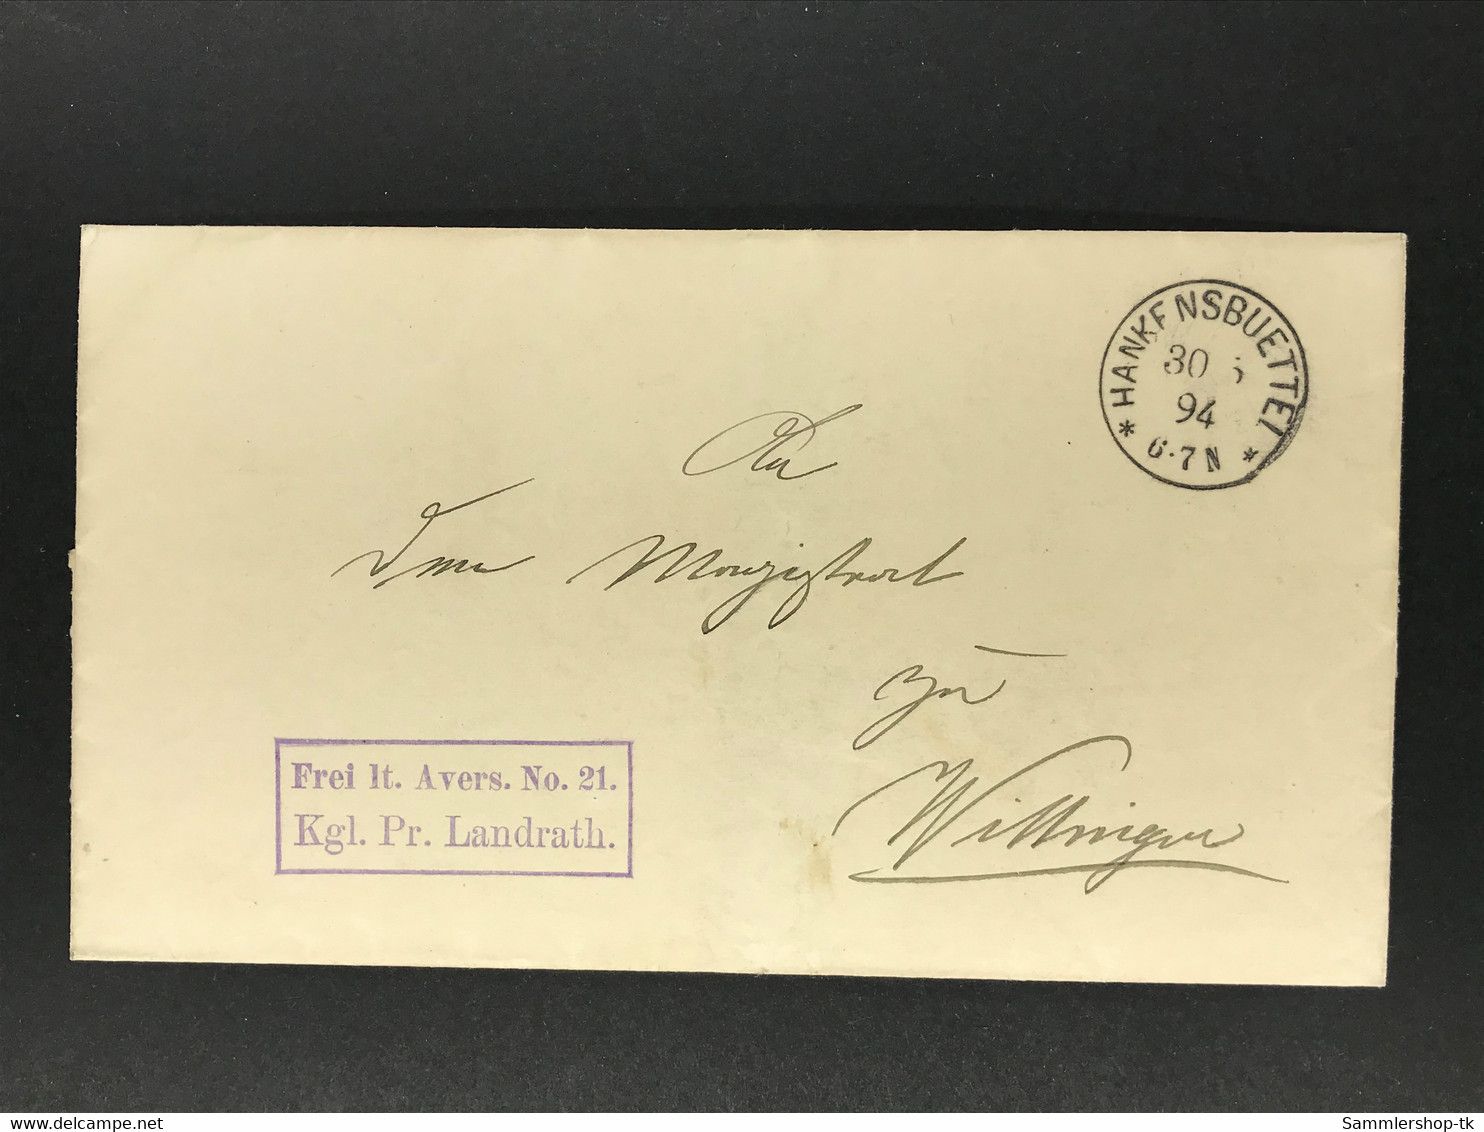 HANKENSBUETTEL
30
94
* 6-7N *
An
Den Magistrat
zu
Wittingen
Frei lt. Avers. No. 21.
Kgl. Pr. Landrath.
Sammlershop-tk